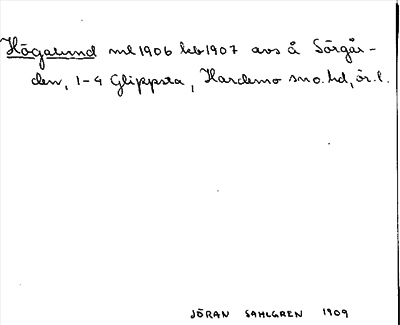 Högalund ml 1906 lcb 1907 avs å Sörgår-
den, 1-4 Glippsta, Hardemo sn o. hd, ör. l.
JÖRAN SAHLGREN 1909